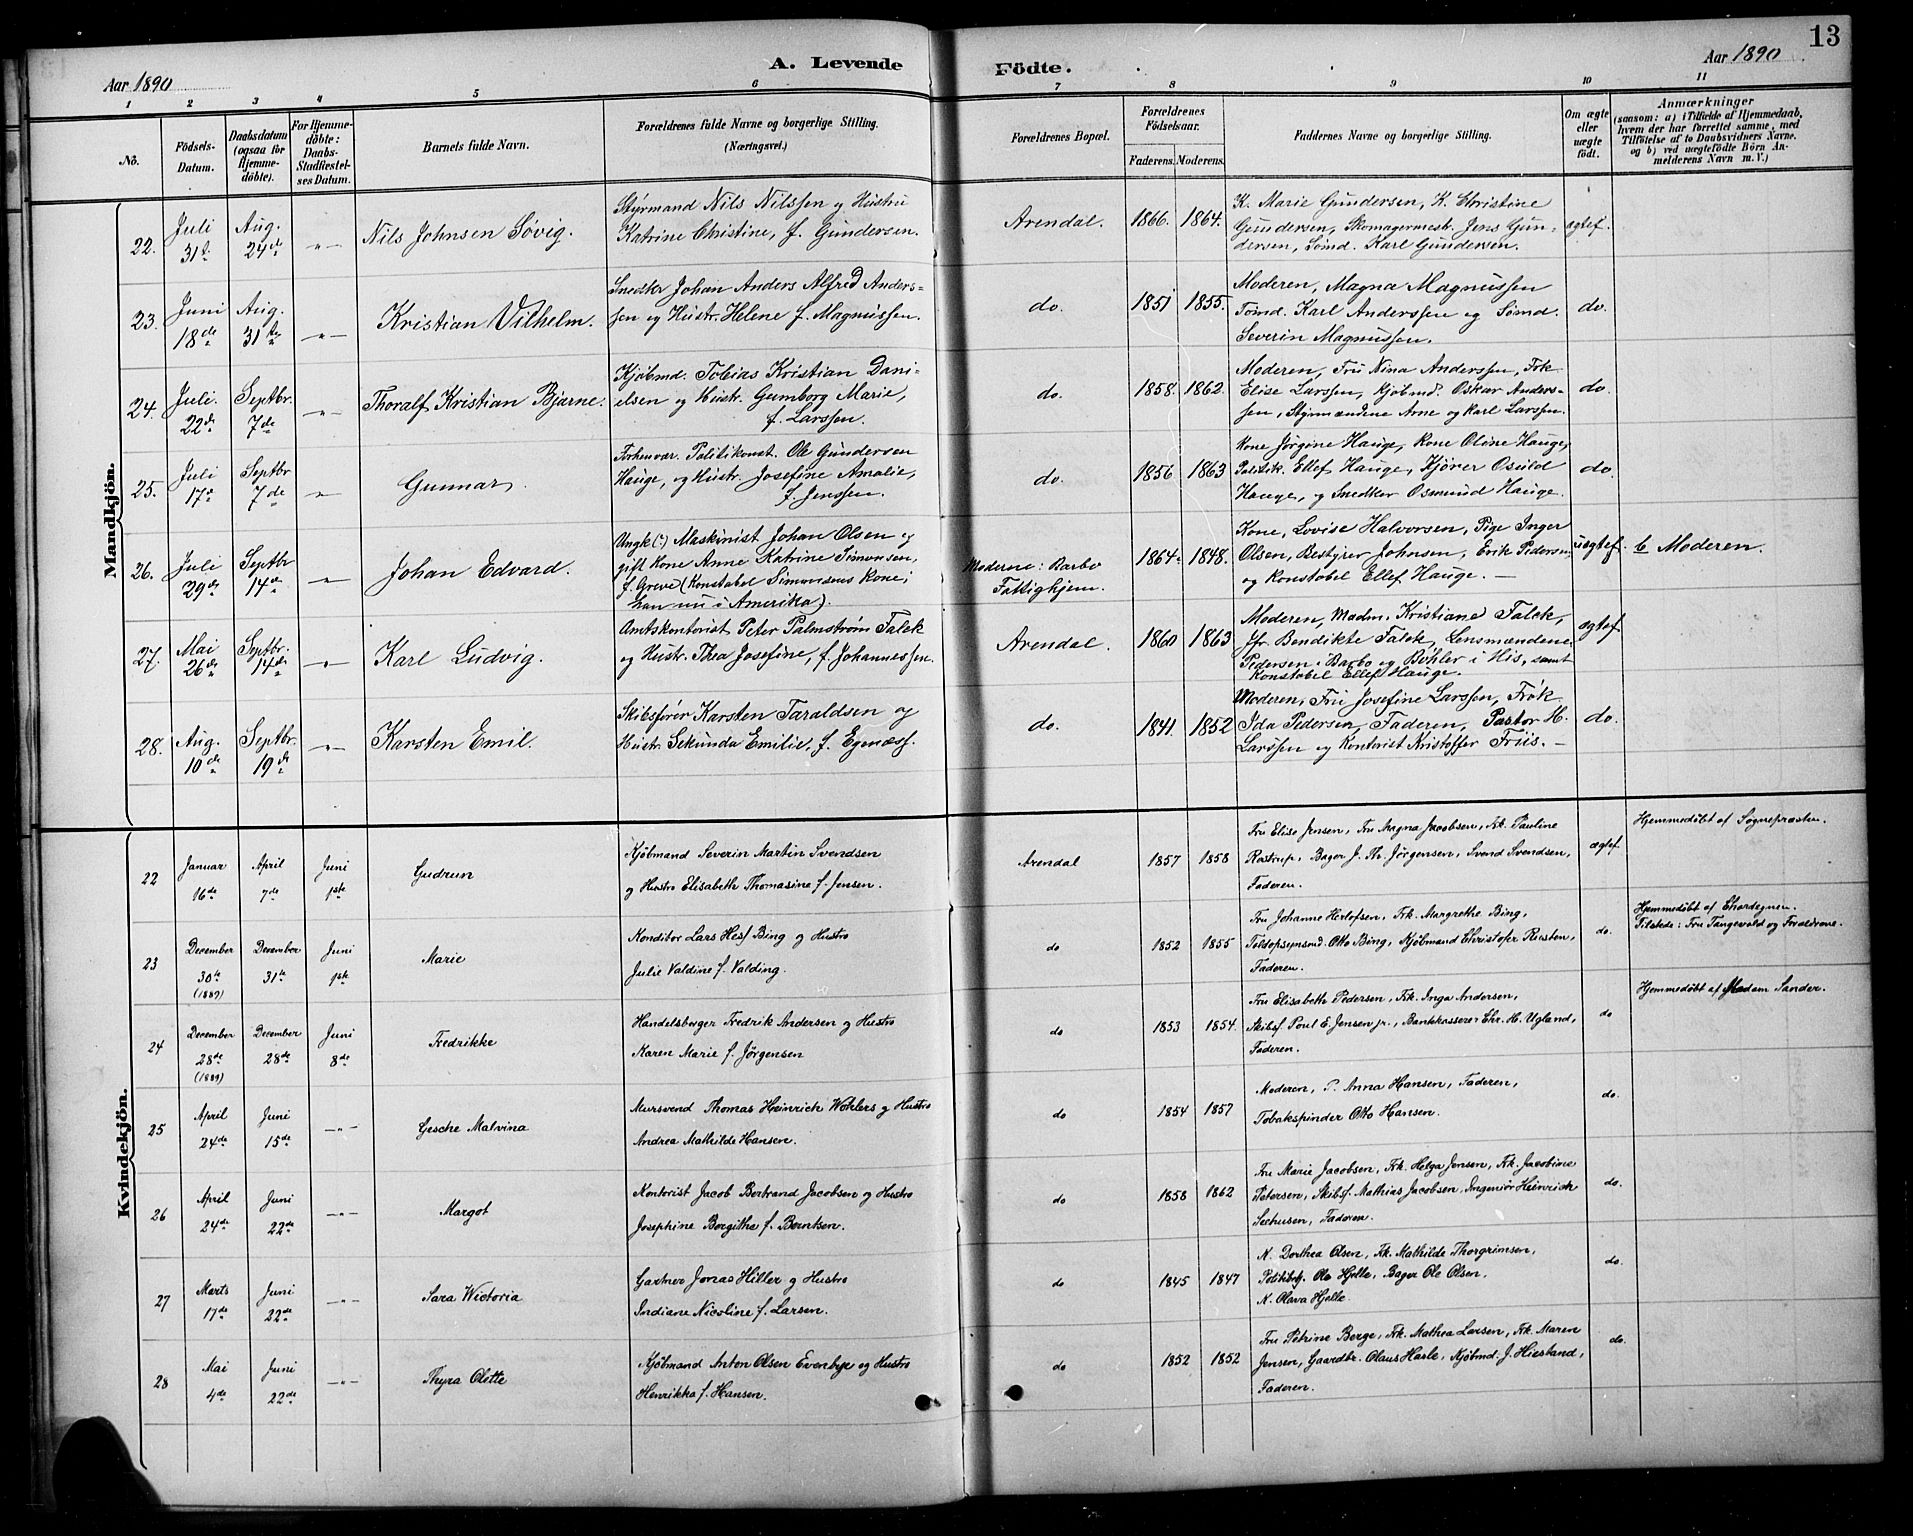 13
Aar 1890
A. Levende Födte.
Aar 1890
1 2 3 4 5 6 7 8 9 10 11
Nô. Födsels-Datum. Daabsdatum (ogsaa for Hjemme-döbte). For Hjemme-döbte: Daabs-Stadfæstel-ses Datum. Barnets fulde Navn. Forældrenes fulde Navne og borgerlige Stilling. (Næringsvei.) Forældrenes Bopæl. Forældrenes Födselsaar. Faderens. Moderens. Faddernes Navne og borgerlige Stilling. Om ægte eller uægte födt. Anmærkninger (saasom: a) i Tilfælde af Hjemmedaab, hvem der har forrettet samme, med Tilföielse af to Daabsvidners Navne. og b) ved uægtefödte Börn An-melderens Navn m.V.)
Mandkjön.
22. Juli 31te Aug. 24de -"- Nils Johnsen Søvig.
Styrmand Nils Nilssen og Hustru
Katrine Christine, f. Gundersen.
Arendal. 1866. 1864.
K. Marie Gundersen, K. Christine
Gundersen, Skomagermestr. Jens Gun-
dersen, Sømd. Karl Gundersen.
ægtef.
23. Juni 18de Aug. 31te -"- Kristian Vilhelm.
Snedkr Johan Anders Alfred Anders-
sen og Hustr. Helene f. Magnussen.
do. 1851 1855.
Moderen, Magna Magnussen
Tømd. Karl Anderssen og Sømd.
Severin Magnussen.
do.
24. Juli. 22de Septbr. 7de -"- Thoralf Kristian Bjarne.
Kjøbmd. Tobias Kristian Dani-
elsen og Hustr. Gumborg Marie,
f. Larssen.
do. 1858. 1862.
Moderen, Fru Nina Anderssen, Frk.
Elise Larssen, Kjøbmd. Oskar Anders-
sen, Styrmændene Arne og Karl Larssen.
do.
25. Juli 17de Septbr 7de -"- Gunnar.
Forhenvar. Politikonst. Ole Gundersen
Hauge, og Hustr. Josefine Amalie,
f. Jenssen.
do. 1856 1863
Kone Jørgine Hauge, Kone Oline Hauge,
Politik. Ellef Hauge, Kjører Osuld
Hauge, og Snedker Osmund Hauge.
do.
26. Juli 29de Septbr 14de -"- Johan Edvard.
Ungk(:) Maskinist Johan Olsen og
gift Kone Anne Katrine Simonsen,
f. Greve (Konstabel Simonsens Kone;
han nu i Amerika).
Moderne: Barbo
Fattighjem.
1864. 1848.
Kone, Lovise Halvorsen, Pige Inger
Olsen, Bestyrer Johnsen, Erik Pedersen
og Konstabel Ellef Hauge. —
uægtef. b Moderen.
27. Mai 26de Septbr. 14de -"- Karl Ludvig.
Amtskontorist Peter Palmstrøm Falck
og Hustr. Thea Josefine, f. Johannessen.
Arendal. 1860 1863
Moderen, Madm. Kristiane Falck,
Jfr. Bendikte Falck, Lensmændene
Pedersen i Barbo og Bøhler i His, samt
Konstabel Ellef Hauge.
ægtef
28. Aug. 10de Septbr. 19de -"- Karsten Emil.
Skibsfører Karsten Taraldsen og
Hustr. Sekunda Emilie, f. Egenæss.
do. 1841. 1852
Moderen, Fru Josefine Larssen, Frøk
Ida Pedersen, Faderen, Pastor H.
Larssen og Kontorist Kristoffer Friis. —
do.
Kvindekjön.
22 Januar 16de April 7de Juni 1ste Gudrun
Kjöbmand Severin Martin Svendsen
og Hustro Elisabeth Thomasine f. Jensen.
Arendal 1857 1858
Fru Elise Jensen, Fru Magna Jacobsen, Frk. Pauline
Rostrup, Bager J. Th. Jörgensen, Svend Svendsen,
Faderen.
ægtef.
Hjemmedöbt af Sognepræsten.
23 December 30te (1889) December 31te Juni 1ste Marie
Konditor Lars Hess Bing og Hustro
Julie Valdine f. Valding.
do 1852 1855
Fru Johanne Herlofsen, Frk. Margrethe Bing,
Toldopsynsmd. Otto Bing, Kjöbmand Christofer Riisten,
Faderen.
do.
Hjemmedöbt af Chordegnen.
Tilstede: Fru Tangevald og Forældrene.
24 December 28de (1889) December 28de Juni 8de Fredrikke
Handelsborger Fredrik Andersen og Hustro
Karen Marie f. Jörgensen
do 1853 1854.
Fru Elisabeth Pedersen, Frk. Inga Andersen,
Skibsf. Poul E. Jensen jr., Bankkasserer Chr. H. Ugland,
Faderen.
do
Hjemmedöbt af Madam Sander.
25 April 24de Juni 15de -"- Gesche Malvina
Mursvend Thomas Heinrich Wohlers og Hustro
Andrea Mathilde Hansen.
do 1854 1857
Moderen, P. Anna Hansen, Faderen,
Tobakspinder Otto Hansen.
do.
26 April 24de Juni 22de -"- Margot
Kontorist Jacob Bertrand Jacobsen og Hustro
Josephine Borgitha f. Berntsen.
do 1858 1862
Fru Marie Jacobsen, Frk. Helga Jensen, Frk. Jacobine
Petersen, Skibsf. Mathias Jacobsen, Ingeniör Heinrich
Seehusen, Faderen.
do.
27 Marts 17de Juni 22de -"- Sara Wictoria
Gartner Jonas Hiller og Hustro
Indiane Nicoline f. Larsen.
do 1845 1847
K. Dorthea Olsen, Frk. Mathilde Thorgrimsen,
Politibtj. Ole Hjelle, Bager Ole Olsen.
K. Olava Hjelle.
do.
28 Mai 4de Juni 22de -"- Thyra Olette
Kjöbmand Anton Olsen Evenbye og Hustro
Henrikka f. Hansen.
do 1852 1852
Fru Petrine Berge, Frk. Mathea Larsen, Frk. Maren
Jensen, Gaardbr. Olaus Hasle, Kjöbmd. J. Hiestand,
Faderen.
do.